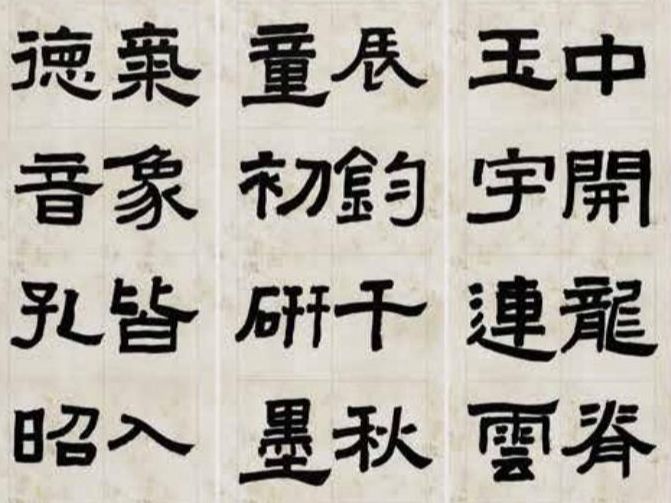 中開龍脊
玉宇連雲
辰鈞千秋
童初研墨
氣象皆入
德音孔昭